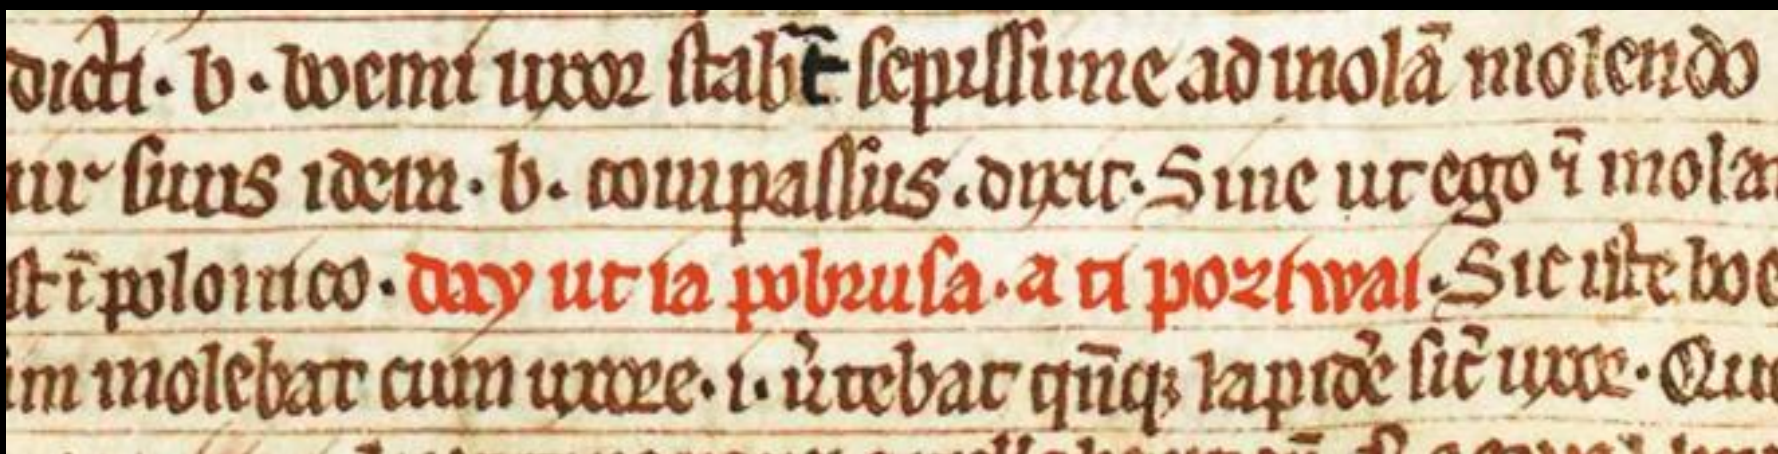 dicti · b · boemi uxor stabat sepissime ad molā molendo
uir suus idem · b · compassus · dixit · Sine ut ego ī mola
st ī polonico · day ut ia pobrusa · a ti poziwai · Sic iste boe
im molebat cum uxore · i · ůtebat qn̄q; lapidē sic̄ uxor · Qu